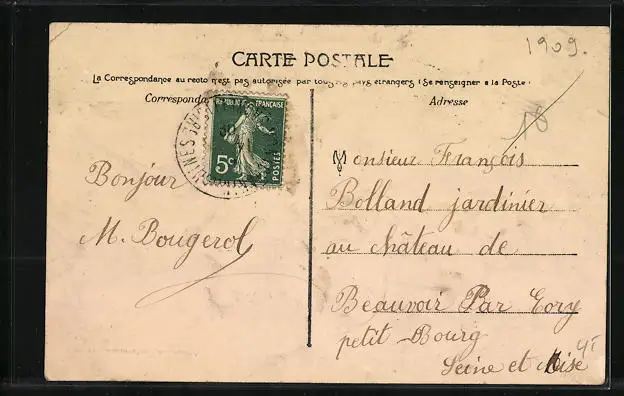 1909.
CARTE POSTALE
La Correspondance au recto n'est pas autorisée par tous les pays étrangers (Se renseigner à la Poste)
Corresponda
Adresse
18
REPUBLIQUE FRANÇAISE
5c
POSTES
Bonjour
M. Bougerol
Monsieur François
Bolland jardinier
au château de
Beauvoir Par Evry
petit-Bourg
Seine et Oise